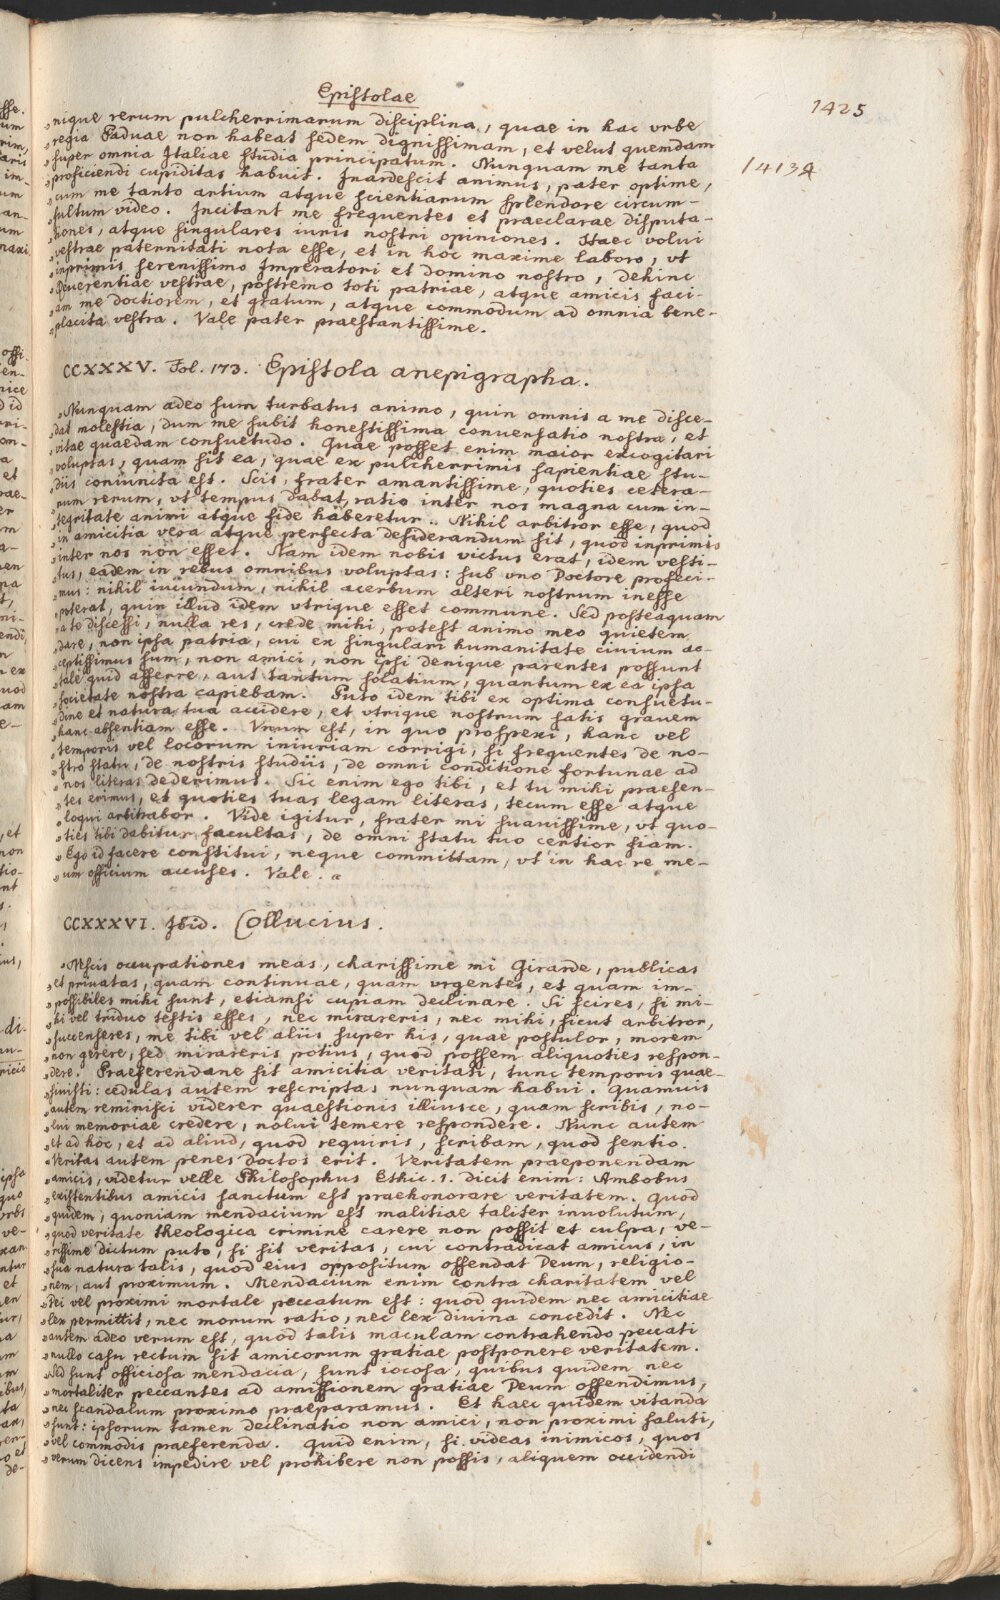 Epistolae
1425
14134
„nique rerum pulcherrimarum disciplina, quae in hac vrbe
„regia Paduae non habeat sedem dignissimam, et velut quemdam
„super omnia Italiae studia principatum. Nunquam me tanta
„proficiendi cupiditas habuit. Inardescit animus, pater optime,
„cum me tanto artium atque scientiarum splendore circum-
„fultum video. Incitant me frequentes et praeclarae disputa-
„tiones, atque singulares iuris nostri opiniones. Haec volui
„vestrae paternitati nota esse, et in hoc maxime laboro, vt
„inprimis serenissimo Imperatori et domino nostro, dehinc
„Reuerentiae vestrae, postremo toti patriae, atque amicis faci-
„am me doctiorem, et gratum, atque commodum ad omnia bene-
„placita vestra. Vale pater praestantissime.
CCXXXV. Fol. 173. Epistola anepigrapha.
„Nunquam adeo sum turbatus animo, quin omnis a me disce-
„dat molestia, dum me subit honestissima conuersatio nostra, et
„vitae quaedam consuetudo. Quae posset enim maior excogitari
„voluptas, quam sit ea, quae ex pulcherrimis sapientiae stu-
„diis coniuncta est. Scis, frater amantissime, quoties cetera-
„rum rerum, vt tempus dabat, ratio inter nos magna cum in-
„tegritate animi atque fide haberetur. Nihil arbitror esse, quod
„in amicitia vera atque perfecta desiderandum sit, quod inprimis
„inter nos non esset. Nam idem nobis victus erat, idem vesti-
„tus, eadem in rebus omnibus voluptas: sub vno Doctore profeci-
„mus: nihil iucundum, nihil acerbum alteri nostrum inesse
„poterat, quin illud idem vtrique esset commune. Sed posteaquam
„a te discessi, nulla res, crede mihi, potest animo meo quietem
„dare, non ipsa patria, cui ex singulari humanitate ciuium ac-
„ceptissimus sum, non amici, non ipsi denique parentes possunt
„tale quid afferre, aut tantum solatium, quantum ex ea ipsa
„societate nostra capiebam. Puto idem tibi ex optima consuetu-
„dine et natura tua accidere, et vtrique nostrum satis grauem
„hanc absentiam esse. Vnum est, in quo prospexi, hanc vel
„temporis vel locorum iniuriam corrigi, si frequentes de no-
„stro statu, de nostris studiis, de omni conditione fortunae ad
„nos literas dederimus. Sic enim ego tibi, et tu mihi praesen-
„tes erimus, et quoties tuas legam literas, tecum esse atque
„loqui arbitrabor. Vide igitur, frater mi suauissime, vt quo-
„ties tibi dabitur facultas, de omni statu tuo certior fiam.
„Ego id facere constitui, neque committam, vt in hac re me-
„um officium accuses. Vale.
CCXXXVI. Ibid. Collucius.
„Nescis occupationes meas, charissime mi Girarde, publicas
„et priuatas, quam continuae, quam vrgentes, et quam im-
„possibiles mihi sunt, etiamsi cupiam declinare. Si scires, si mi-
„hi vel triduo testis esses, nec mirareris, nec mihi, sicut arbitror,
„succenseres, me tibi vel aliis super his, quae postulor, morem
„non gerere, sed mirareris potius, quod possem aliquoties respon-
„dere. Praeferendane sit amicitia veritati, tunc temporis quae-
„siuisti: cedulas autem rescriptas nunquam habui. Quamuis
„autem reminisci viderer quaestionis illiusce, quam scribis, no-
„lui memoriae credere, nolui temere respondere. Nunc autem
„et ad hoc, et ad aliud, quod requiris, scribam, quod sentio.
„Veritas autem penes doctos erit. Veritatem praeponendam
„amicis, videtur velle Philosophus Ethic. 1. dicit enim: Ambobus
„existentibus amicis sanctum est praehonorare veritatem. Quod
„quidem, quoniam mendacium est malitiae taliter inuolutum,
„quod veritate theologica crimine carere non possit et culpa, ve-
„rissime dictum puto, si sit veritas, cui contradicat amicus, in
„sua natura talis, quod eius oppositum offendat Deum, religio-
„nem, aut proximum. Mendacium enim contra charitatem vel
„Dei vel proximi mortale peccatum est: quod quidem nec amicitiae
„lex permittit, nec morum ratio, nec lex diuina concedit. Nec
„autem adeo verum est, quod talis maculam contrahendo peccati
„nullo casu rectum sit amicorum gratiae postponere veritatem.
„Sed sunt officiosa mendacia, sunt iocosa, quibus quidem nec
„mortaliter peccantes ad amissionem gratiae Deum offendimus,
„nec scandalum proximo praeparamus. Et haec quidem vitanda
„sunt: ipsorum tamen declinatio non amici, non proximi saluti,
„vel commodis praeferenda. Quid enim, si videas inimicos, quos
„verum dicens impedire vel prohibere non possis, aliquem occidendi